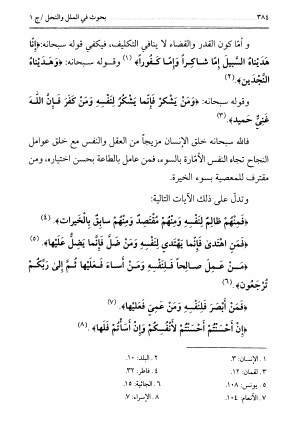 ٣٨٤ بحوث في الملل والنحل / ج ١
و أمّا كون القدر والقضاء لا ينافي التكليف، فيكفي قوله سبحانه: ﴿إِنَّا
هَدَيْنَاهُ السَّبِيلَ إِمَّا شَاكِراً وَإِمَّا كَفُوراً﴾ (١) وقوله سبحانه: ﴿وَهَدَيْنَاهُ
النَّجْدَيْنِ﴾ (٢)
وقوله سبحانه: ﴿وَمَنْ يَشْكُرْ فَإِنَّمَا يَشْكُرُ لِنَفْسِهِ وَمَنْ كَفَرَ فَإِنَّ اللهَ
غَنِيٌّ حَمِيد﴾ (٣).
فالله سبحانه خلق الإنسان مزيجاً من العقل والنفس مع خلق عوامل
النجاح تجاه النفس الأمّارة بالسوء، فمن عامل بالطاعة بحسن اختياره، ومن
مقترف للمعصية بسوء الخيرة.
وتدلّ على ذلك الآيات التالية:
﴿فَمِنْهُمْ ظَالِمٌ لِنَفْسِهِ وَمِنْهُمْ مُقْتَصِدٌ وَمِنْهُمْ سَابِقٌ بِالْخَيرات﴾. (٤)
﴿فَمَنِ اهْتَدىٰ فَإِنَّمَا يَهْتَدِي لِنَفْسِهِ وَمَنْ ضَلَّ فَإِنَّمَا يَضِلُّ عَلَيْهَا﴾. (٥)
﴿مَـنْ عَمِـلَ صالِحـاً فَلِـنَفْسِهِ وَمَـنْ أَسـاءَ فَـعَلَيْها ثُـمَّ إِلىٰ رَبِّكُـمْ
تُرْجَعُون﴾. (٦)
﴿فَمَنْ أَبْصَرَ فَلِنَفْسِهِ وَمَنْ عَمِيَ فَعَلَيْها﴾. (٧)
﴿إِنْ أَحْسَنْتُمْ أَحْسَنْتُمْ لأَنْفُسِكُمْ وَإِنْ أَسَأْتُمْ فَلَها﴾. (٨)
١ . الإنسان: ٣. ٢ . البلد: ١٠.
٣ . لقمان: ١٢. ٤ . فاطر: ٣٢.
٥ . يونس: ١٠٨. ٦ . الجاثية: ١٥.
٧ . الأنعام: ١٠٤. ٨ . الإسراء: ٧.